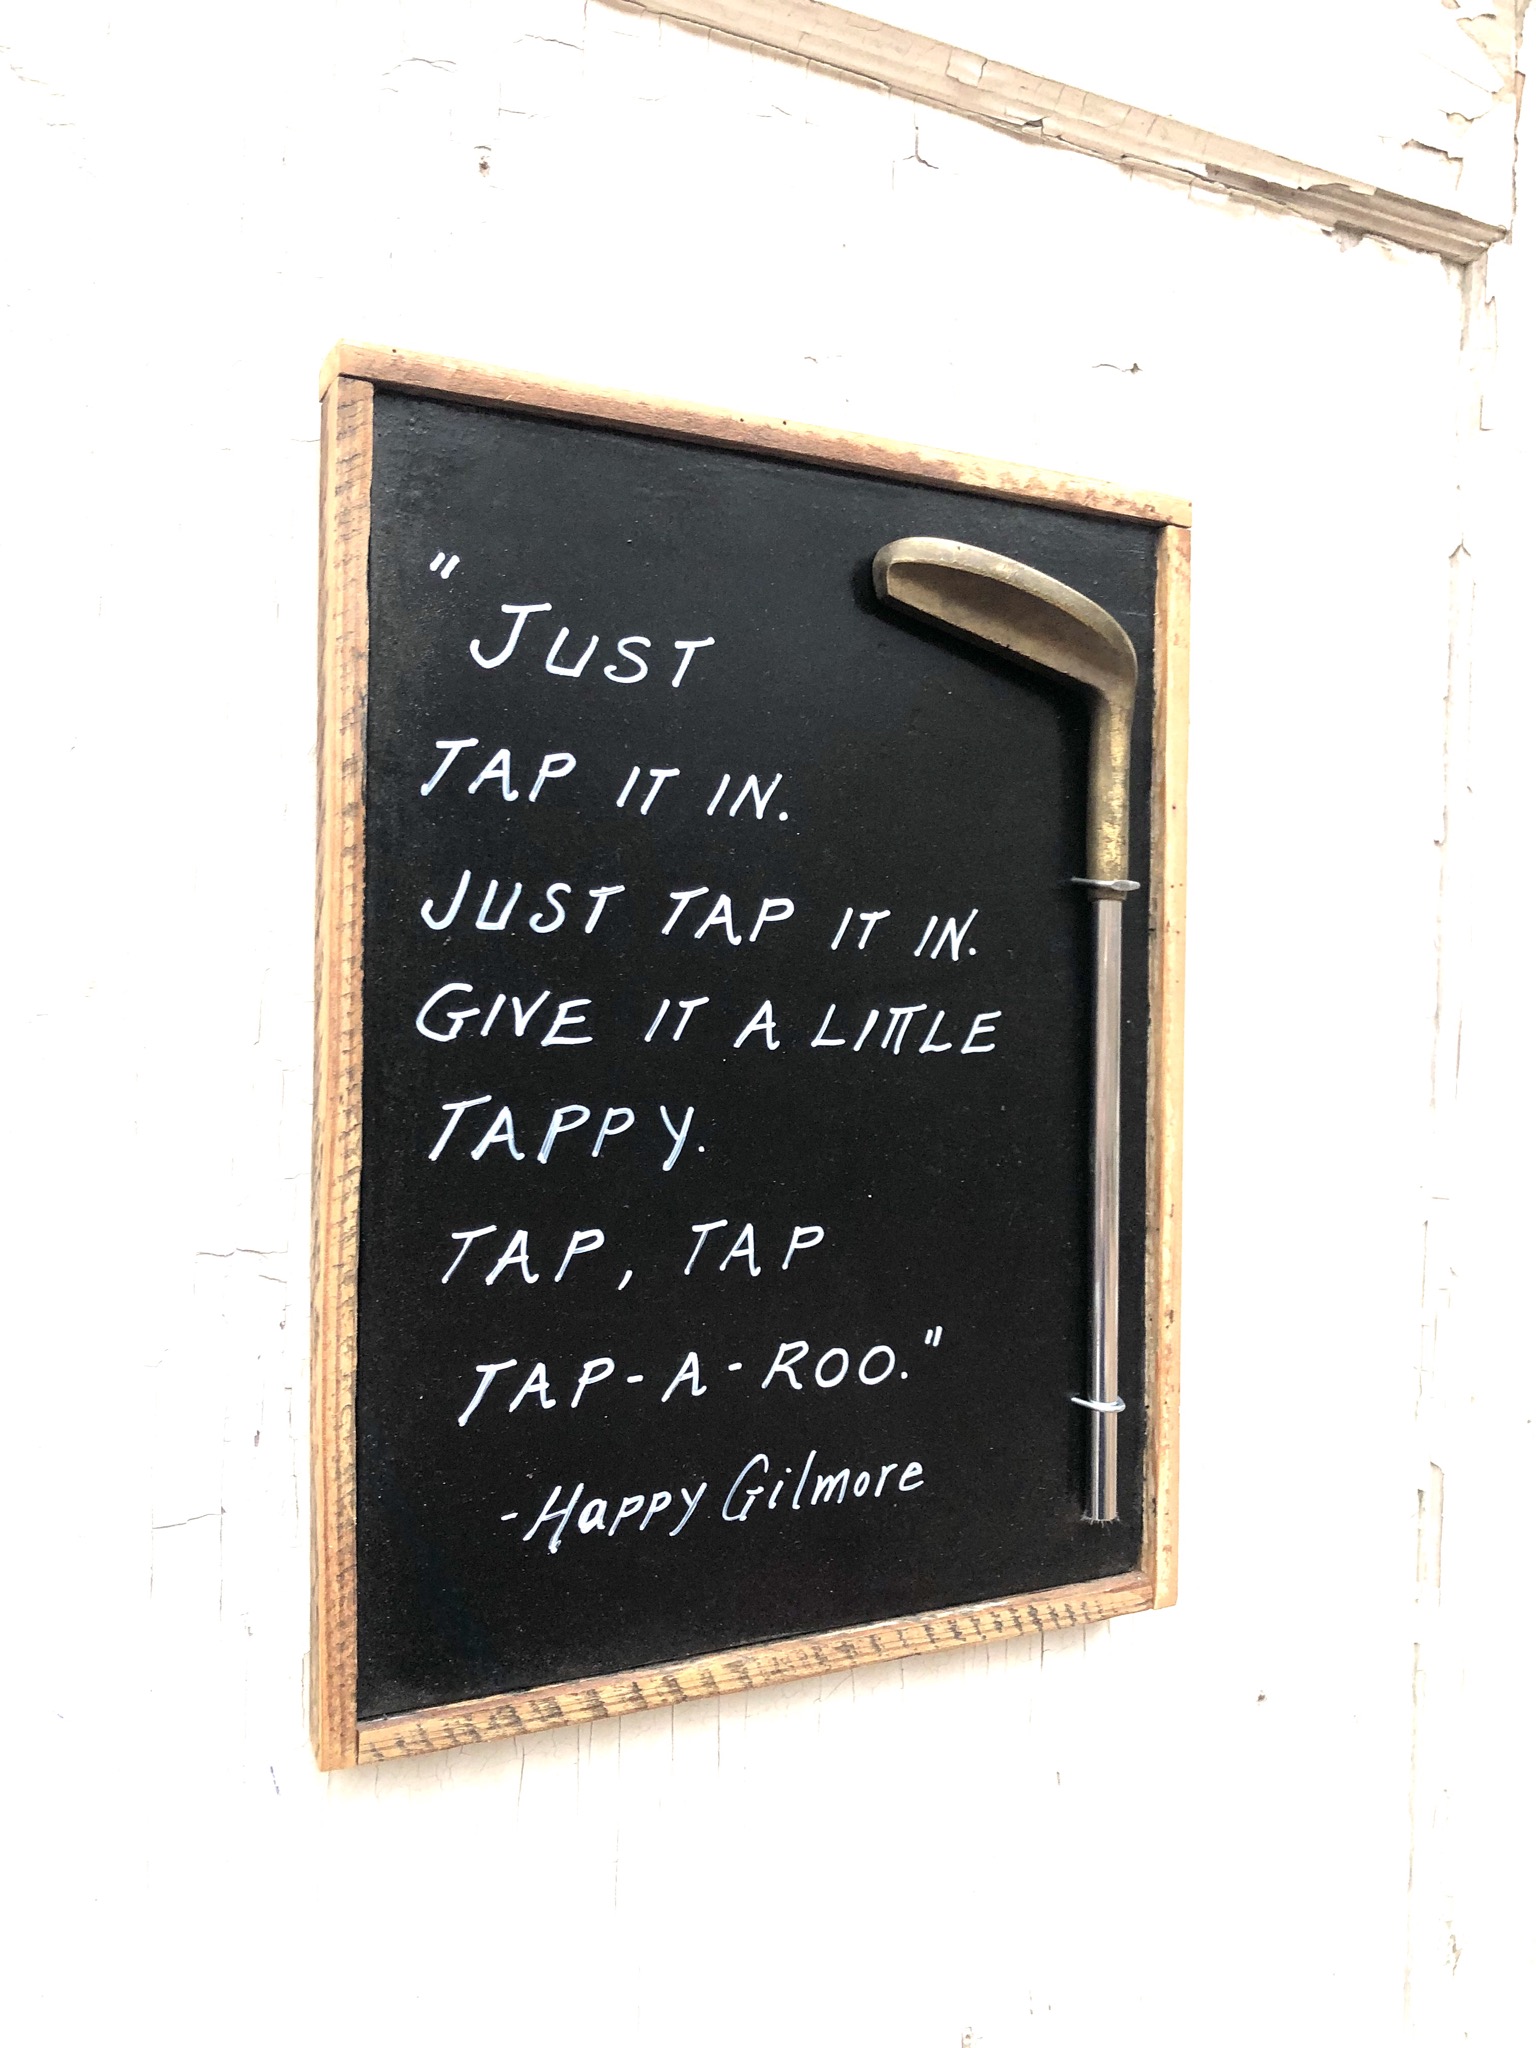 "JUST
TAP IT IN.
JUST TAP IT IN.
GIVE IT A LITTLE
TAPPY.
TAP, TAP
TAP-A-ROO."
-Happy Gilmore